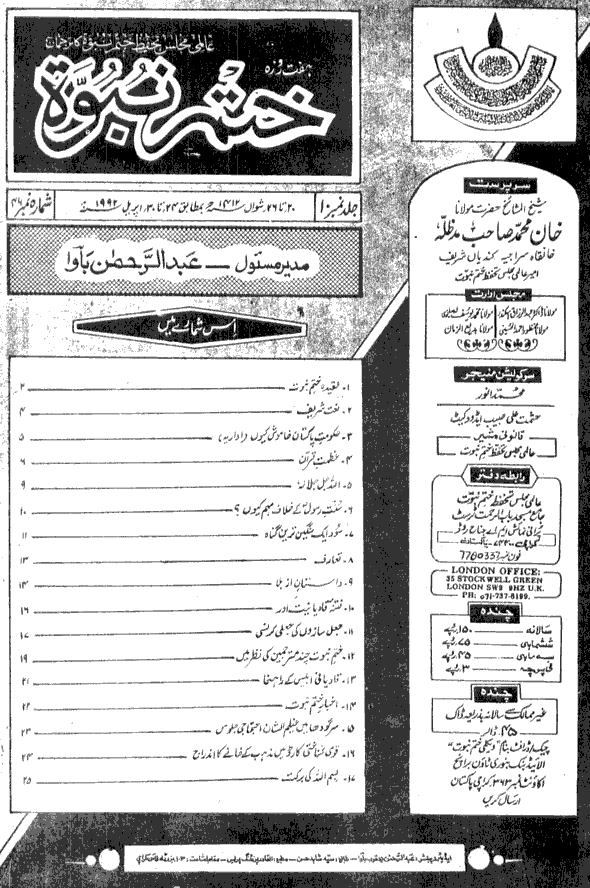 عالمی مجلس تحفظ ختم نبوۃ کا ترجمان
ہفت روزہ
ختم نبوۃ
جلد نمبر ۱۰
۲۰ تا ۲۶ شوال ۱۴۱۲ھ بمطابق ۲۴ تا ۳۰ اپریل ۱۹۹۲ء
شمارہ نمبر ۴۶
مدیر مسئول — عبدالرحمٰن باوا
اس شمارے میں
۱۔ عقیدہ ختم نبوت ۲
۲۔ نعت شریف ۴
۳۔ حکومت پاکستان خاموش کیوں (اداریہ) ۵
۴۔ عظمت قرآن ۶
۵۔ اللہ جل جلالہ ۹
۶۔ سنت رسول کے خلاف مہم کیوں؟ ۱۰
۷۔ سود ایک سنگین ترین گناہ ۱۱
۸۔ تعارف ۱۳
۹۔ داستان ازبلا ۱۴
۱۰۔ فتنہ قادیانیت اور ۱۶
۱۱۔ جعل سازوں کی جعلی کرنسی ۱۷
۱۲۔ ختم نبوت چند مترجمین کی نظر میں ۱۹
۱۳۔ قادیانی ابلیس کے راہنما ۲۱
۱۴۔ اخبار ختم نبوت ۲۲
۱۵۔ سرگودھا میں عظیم الشان احتجاجی جلوس ۲۳
۱۶۔ قومی شناختی کارڈ میں مذہب کے خانے کا اندراج ۲۴
۱۷۔ بسم اللہ کی برکت ۲۵
سرپرست
شیخ المشائخ حضرت مولانا
خان محمد صاحب مدظلہ
خانقاہ سراجیہ کندیاں شریف
امیر عالمی مجلس تحفظ ختم نبوت
مجلس ادارت
مولانا ڈاکٹر عبدالرزاق اسکندر مولانا محمد یوسف لدھیانوی
مولانا منظور احمد الحسینی مولانا بدیع الزمان
سرکولیشن منیجر
محمد انور
حشمت علی حبیب ایڈووکیٹ
قانونی مشیر
عالمی مجلس تحفظ ختم نبوت
رابطہ دفتر
عالمی مجلس تحفظ ختم نبوت
جامع مسجد باب الرحمت ٹرسٹ
پرانی نمائش ایم اے جناح روڈ
کراچی ۷۴۴۰۰ پاکستان
فون نمبر 7780337
LONDON OFFICE:
35 STOCKWELL GREEN
LONDON SW9 9HZ U.K.
PH: 071-737-8199.
چندہ
سالانہ ۱۵۰ روپے
ششماہی ۷۵ روپے
سہ ماہی ۴۵ روپے
فی پرچہ ۳ روپے
چندہ
غیر ممالک سے سالانہ بذریعہ ڈاک
۲۵ ڈالر
چیک / ڈرافٹ بنام "ویکلی ختم نبوت"
الائیڈ بینک بنوری ٹاؤن برانچ
اکاؤنٹ نمبر ۳۶۳ کراچی پاکستان
ارسال کریں